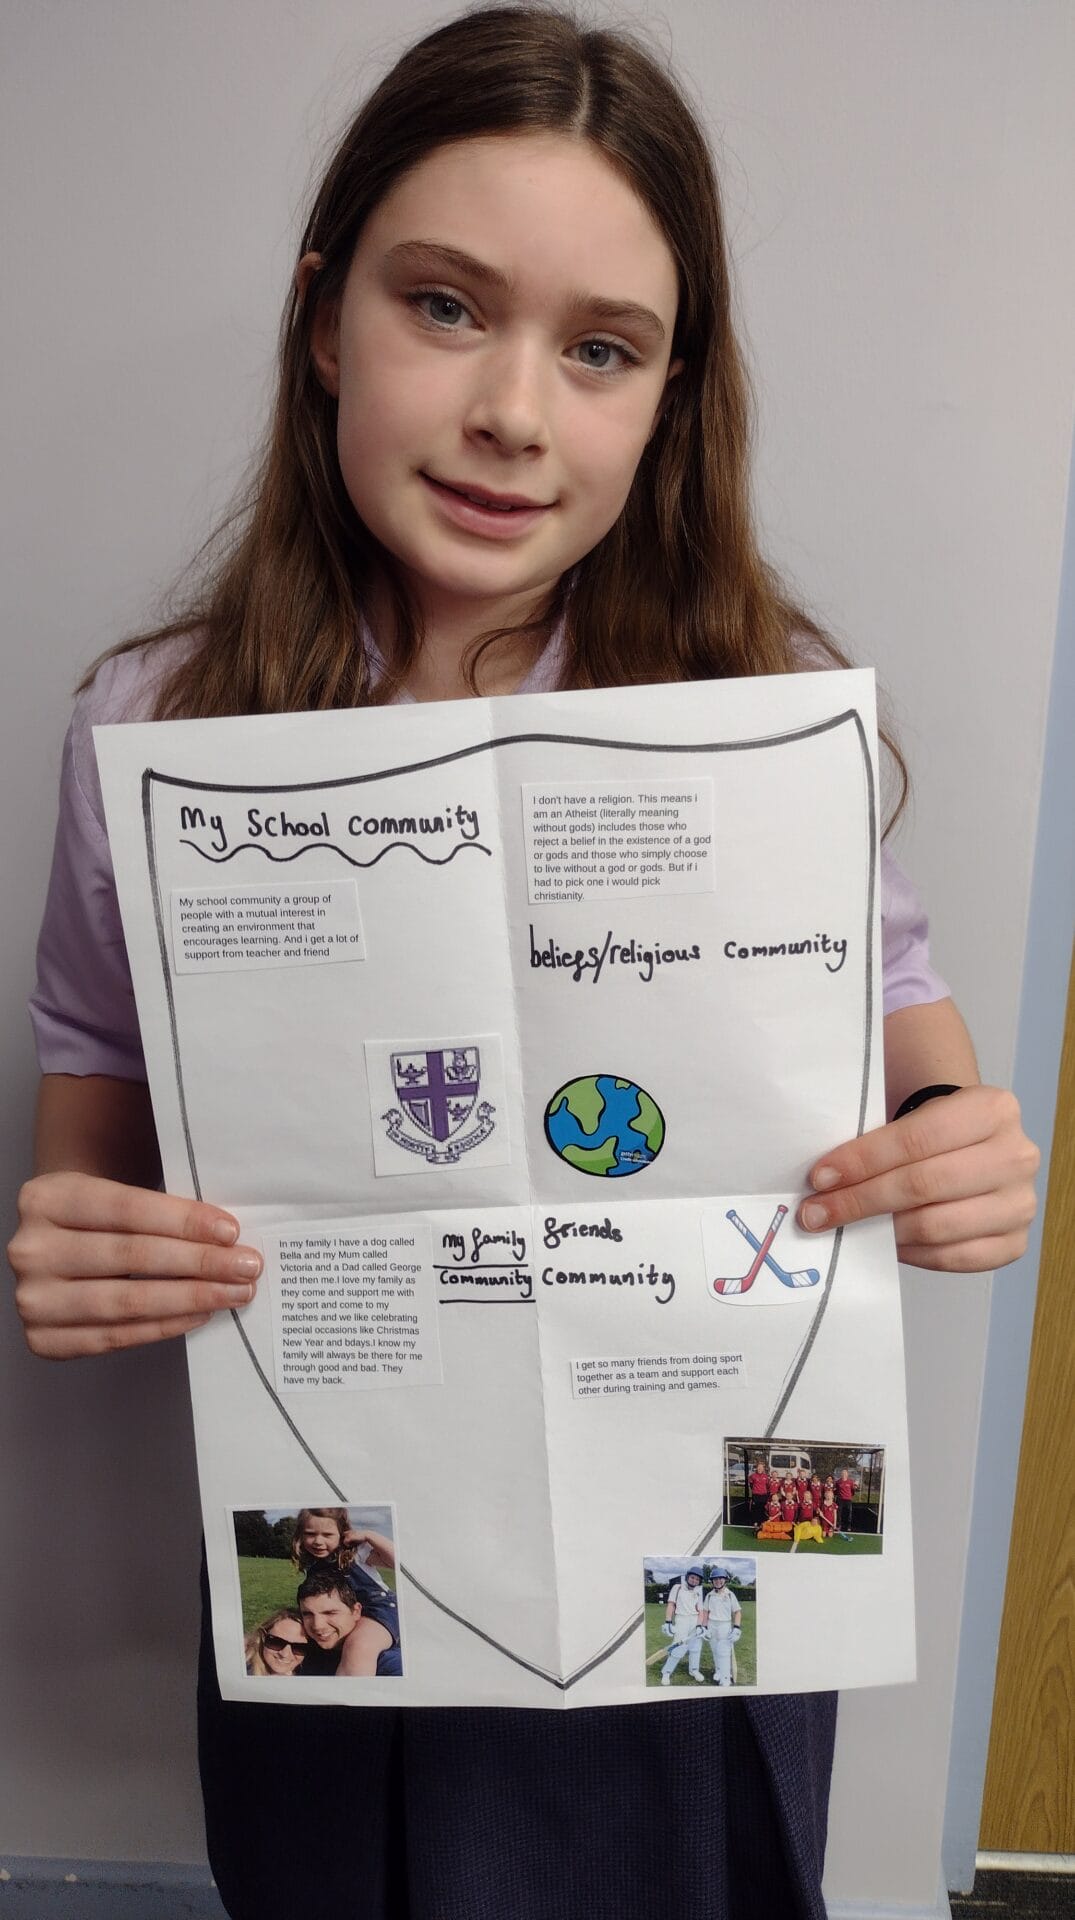 My School community
My school community a group of
people with a mutual interest in
creating an environment that
encourages learning. And i get a lot of
support from teacher and friend
I don't have a religion. This means i
am an Atheist (literally meaning
without gods) includes those who
reject a belief in the existence of a god
or gods and those who simply choose
to live without a god or gods. But if i
had to pick one i would pick
christianity.
beliefs/religious community
My family
community
In my family I have a dog called
Bella and my Mum called
Victoria and a Dad called George
and then me.I love my family as
they come and support me with
my sport and come to my
matches and we like celebrating
special occasions like Christmas
New Year and bdays.I know my
family will always be there for me
through good and bad. They
have my back.
friends
community
I get so many friends from doing sport
together as a team and support each
other during training and games.